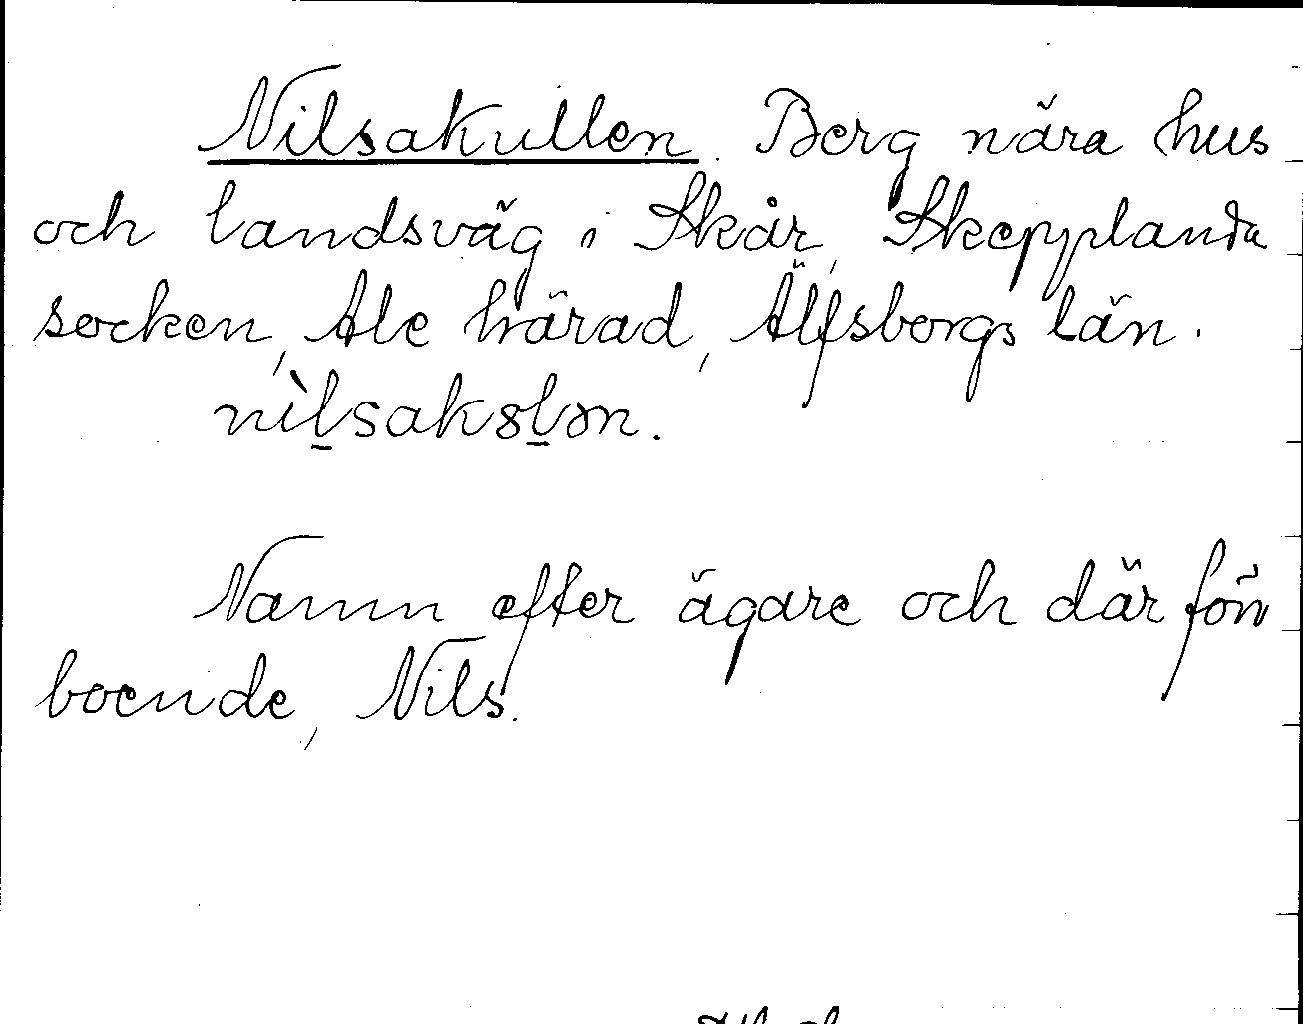 Nilsakullen. Berg nära hus
och landsväg i Skår, Skepplanda
socken, Ale härad, Älfsborgs län.
nìl̲sakɞl̲ən.
Namn efter ägare och där förr
boende, Nils.